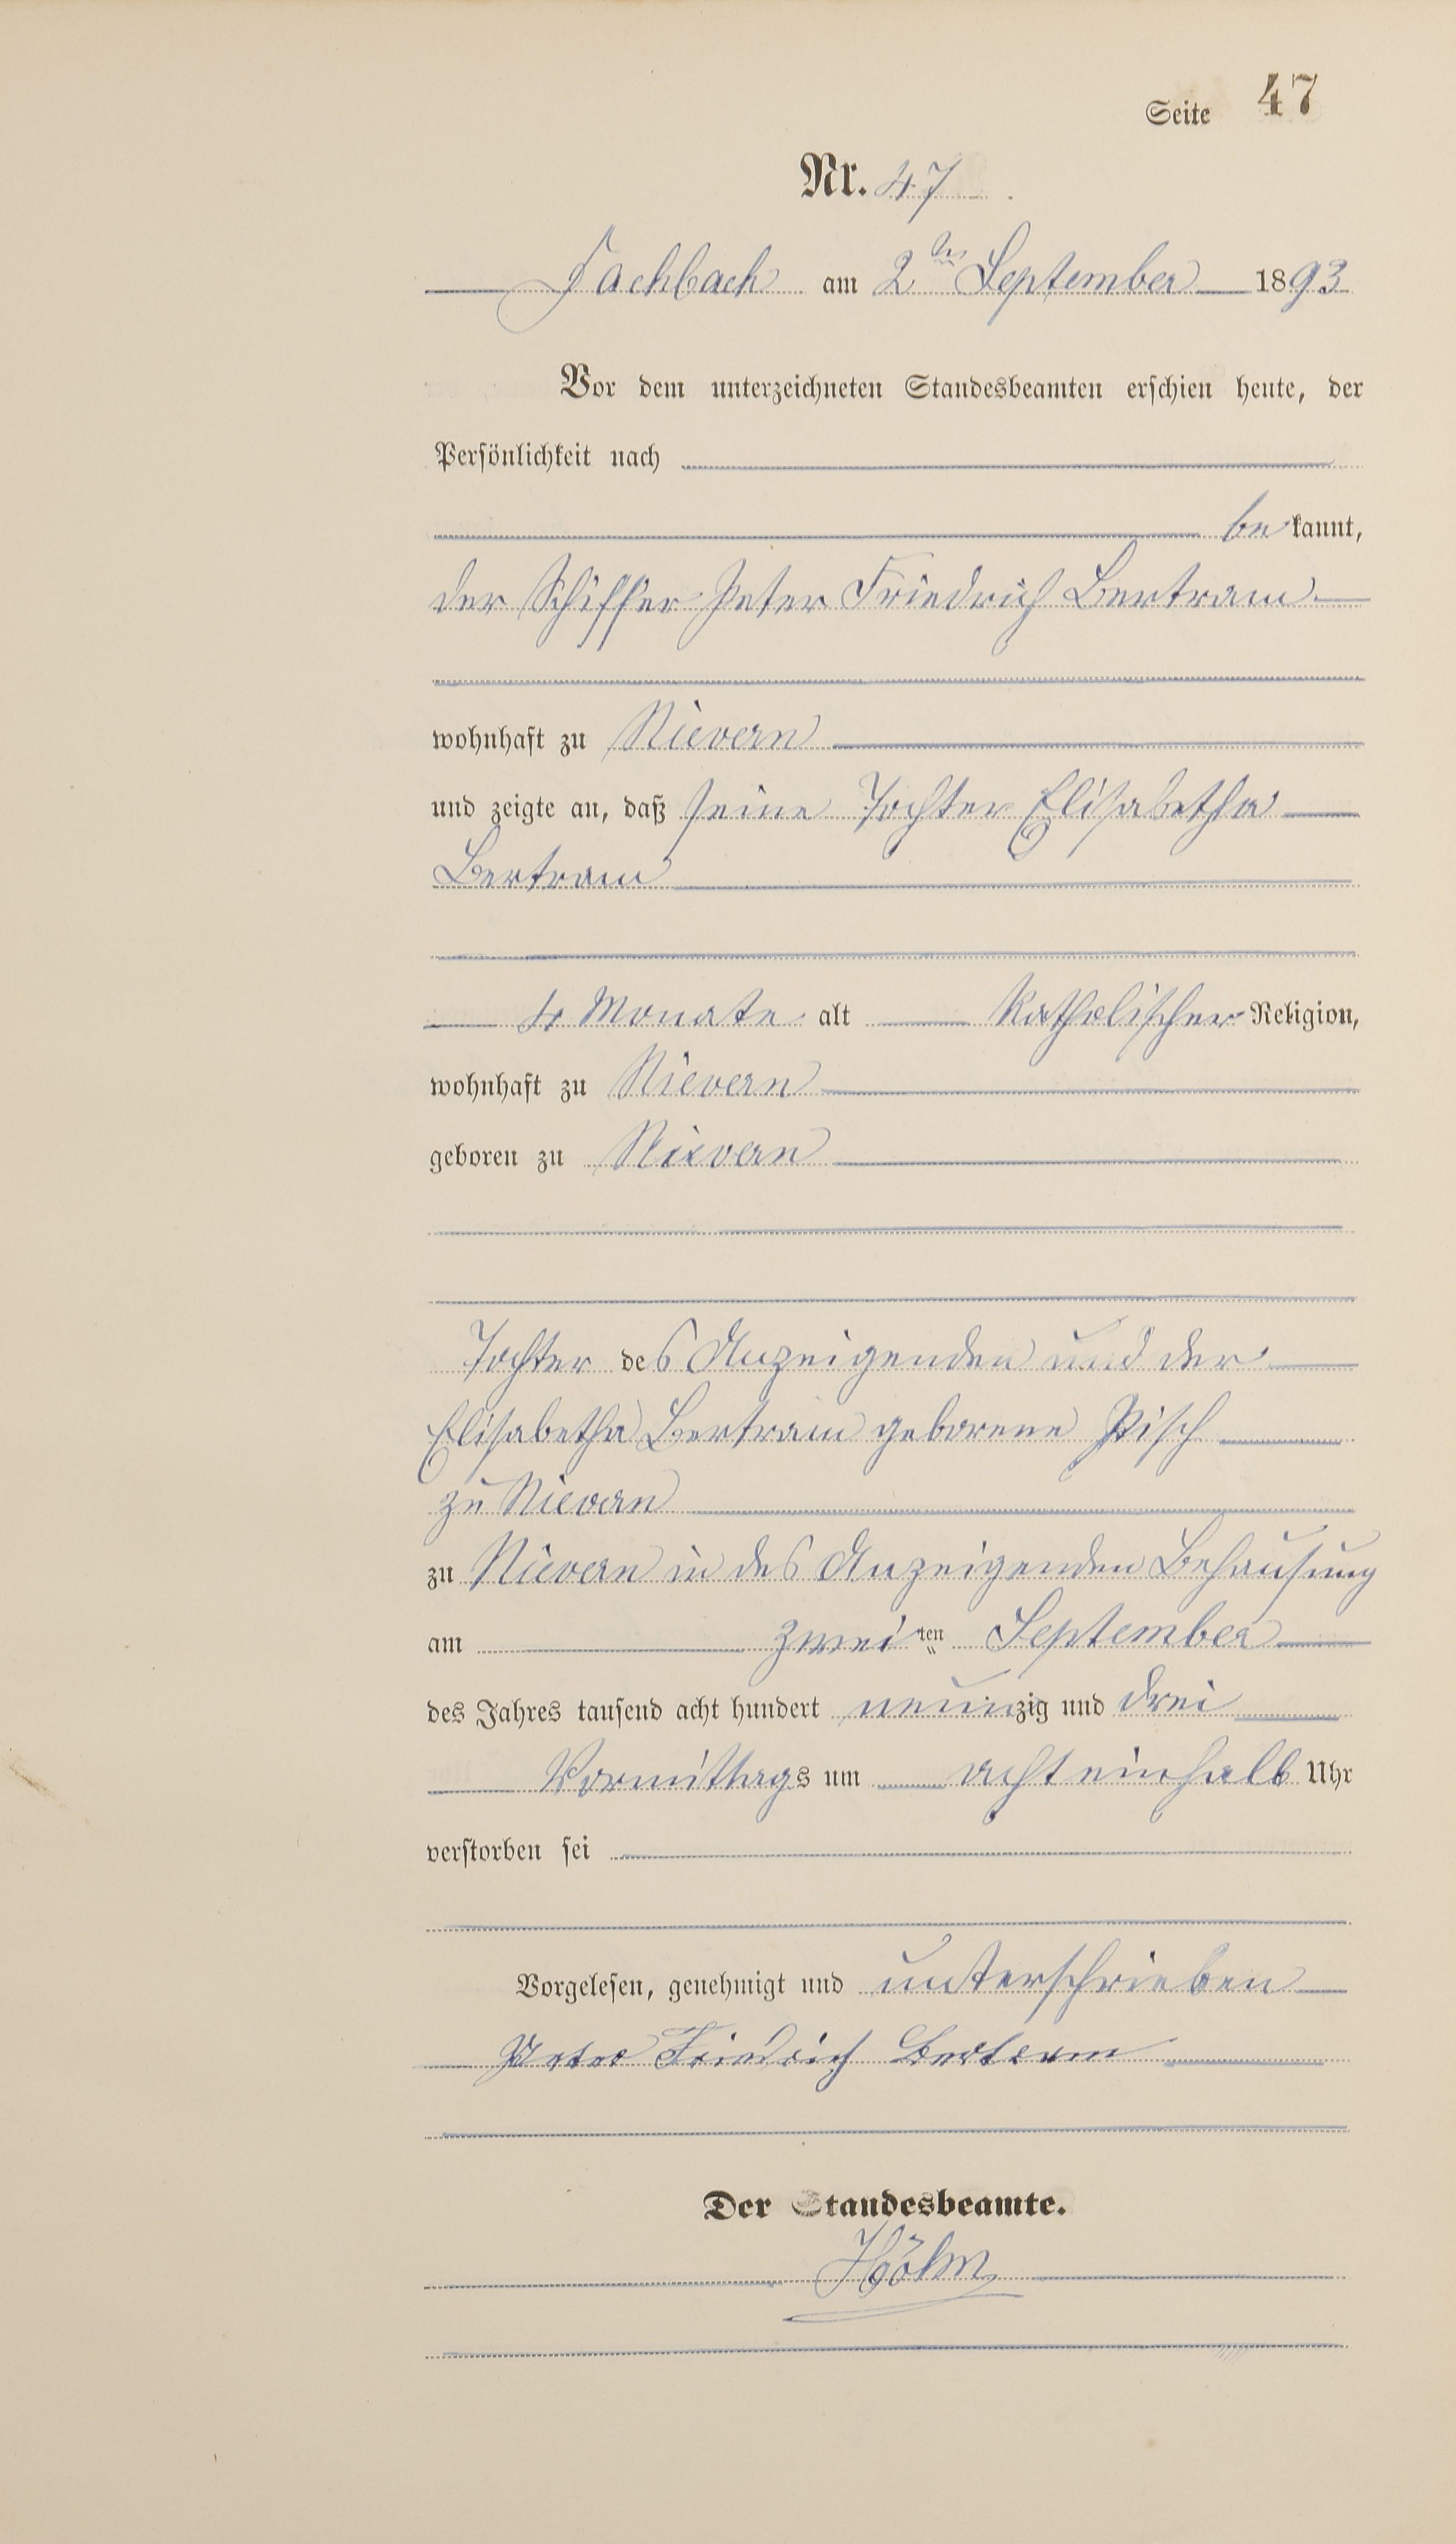 Seite 47
Nr. 47
Fachbach am 2ten September 1893
Vor dem unterzeichneten Standesbeamten erschien heute, der
Persönlichkeit nach
be kannt,
der Schiffer Peter Friedrich Bertram
wohnhaft zu Nievern
und zeigte an, daß seine Tochter Elisabetha
Bertram
4 Monate alt katholischer Religion,
wohnhaft zu Nievern
geboren zu Nievern
Tochter des Anzeigenden und der
Elisabetha Bertram geborene Pisch
zu Nievern
zu Nievern in des Anzeigenden Behausung
am zweiten September
des Jahres tausend acht hundert neunzig und drei
Vormittags um acht einhalb Uhr
verstorben sei
Vorgelesen, genehmigt und unterschrieben
Peter Friedrich Bertram
Der Standesbeamte.